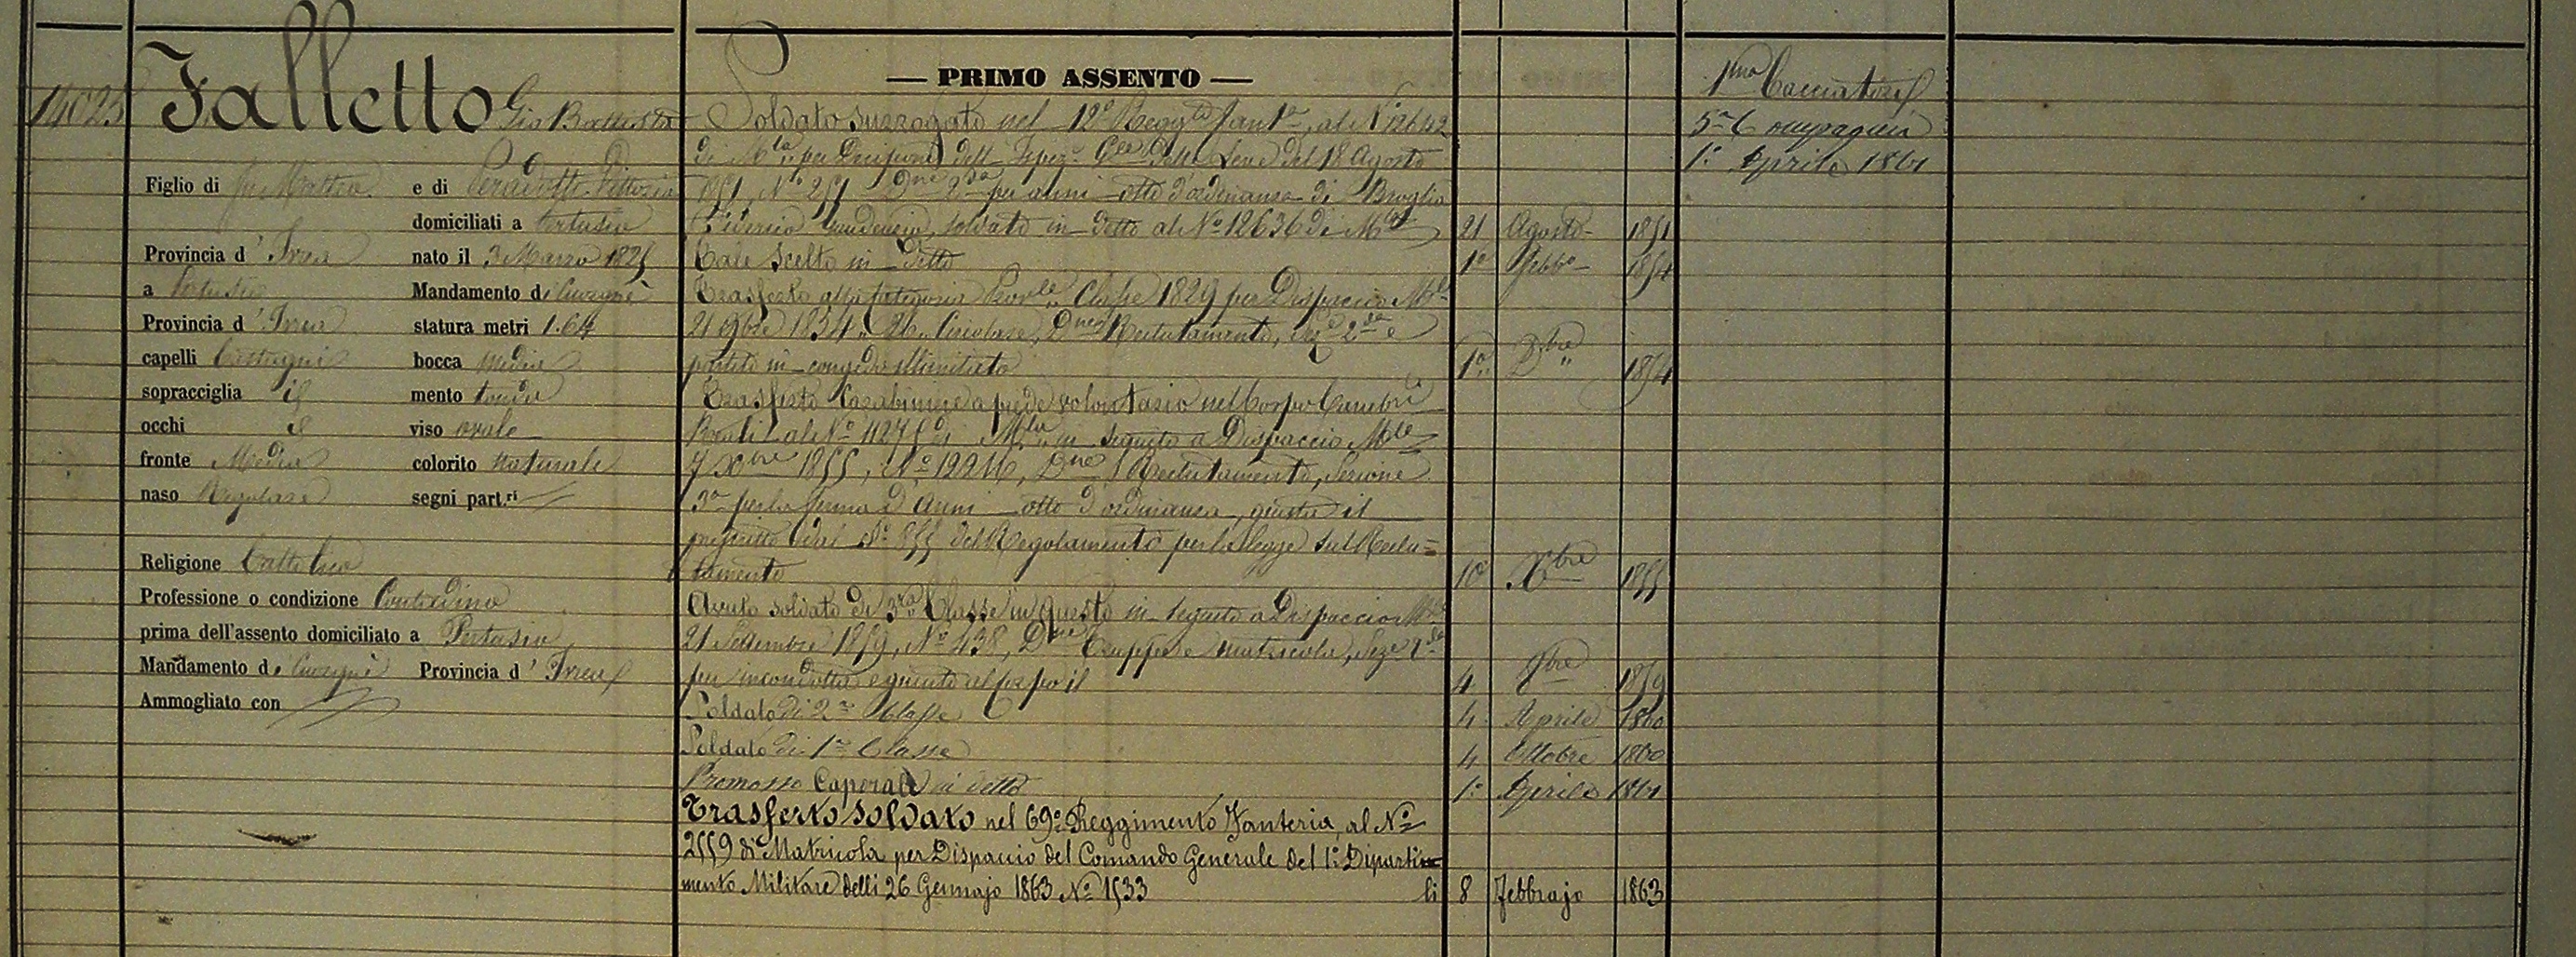 14025
Falletto Gio Battista
Figlio di fu Matteo e di Vittoria
domiciliati a Pertusio
Provincia d' Ivrea nato il 3 Marzo 1825
a Pertusio Mandamento di Cuorgnè
Provincia d' Ivrea statura metri 1.64
capelli Castagni bocca media
sopracciglia id mento tondo
occhi id viso ovale
fronte Media colorito Naturale
naso Regolare segni part.ri
Religione Cattolica
Professione o condizione Contadino
prima dell'assento domiciliato a Pertusio
Mandamento di Cuorgnè Provincia d' Ivrea
Ammogliato con
— PRIMO ASSENTO —
Soldato surrogato nel 12º Reggto Fantª, al Nº 12642
di Mla per Decisione dell' Ispezº Gle delle Leve del 18 Agosto
1851, Nº 251 Dne 2da per anni otto d'ordinanza di Broglia
soldato in detto al Nº 12636 di Mla 21 Agosto 1851
Tale scelto in detto 1º Febbº 1854
Trasferto alla categoria Provle Classe 1829 per Dispaccio Mle
21 9bre 1854 Nº 26 Circolare, Dne Reclutamento, Sezº 2da e
partito in congedo illimitato 1º Dbre 1854
Trasferto Carabiniere a piede volontario nel Corpo Carabri
Reali al Nº 11275 di Mla in seguito a Dispaccio Mle
7 Xbre 1855, Nº 19216, Dne Reclutamento, Sezione
3ª per la ferma d'anni otto d'ordinanza, giusta il
prescritto dal § 855 del Regolamento per la legge sul Reclu=
tamento 10 Xbre 1855
Avuto soldato di 3za Classe in questo in seguito a Dispaccio Mle
21 Settembre 1859, Nº 438, Dne Truppe e matricola, Seze 2da
per incondotta e giunto al corpo il 4 8bre 1859
Soldato di 2ª Classe 4 Aprile 1860
Soldato di 1ª Classe 4 Ottobre 1860
Promosso Caporale in detto 1º Aprile 1861
Trasferto soldato nel 69º Reggimento Fanteria, al Nº
2559 di Matricola per Dispaccio del Comando Generale del 1º Diparti
mento Militare delli 26 Gennajo 1863 Nº 1533 li 8 Febbrajo 1863
1mo Cacciatori
5ª Compagnia
1º Aprile 1861